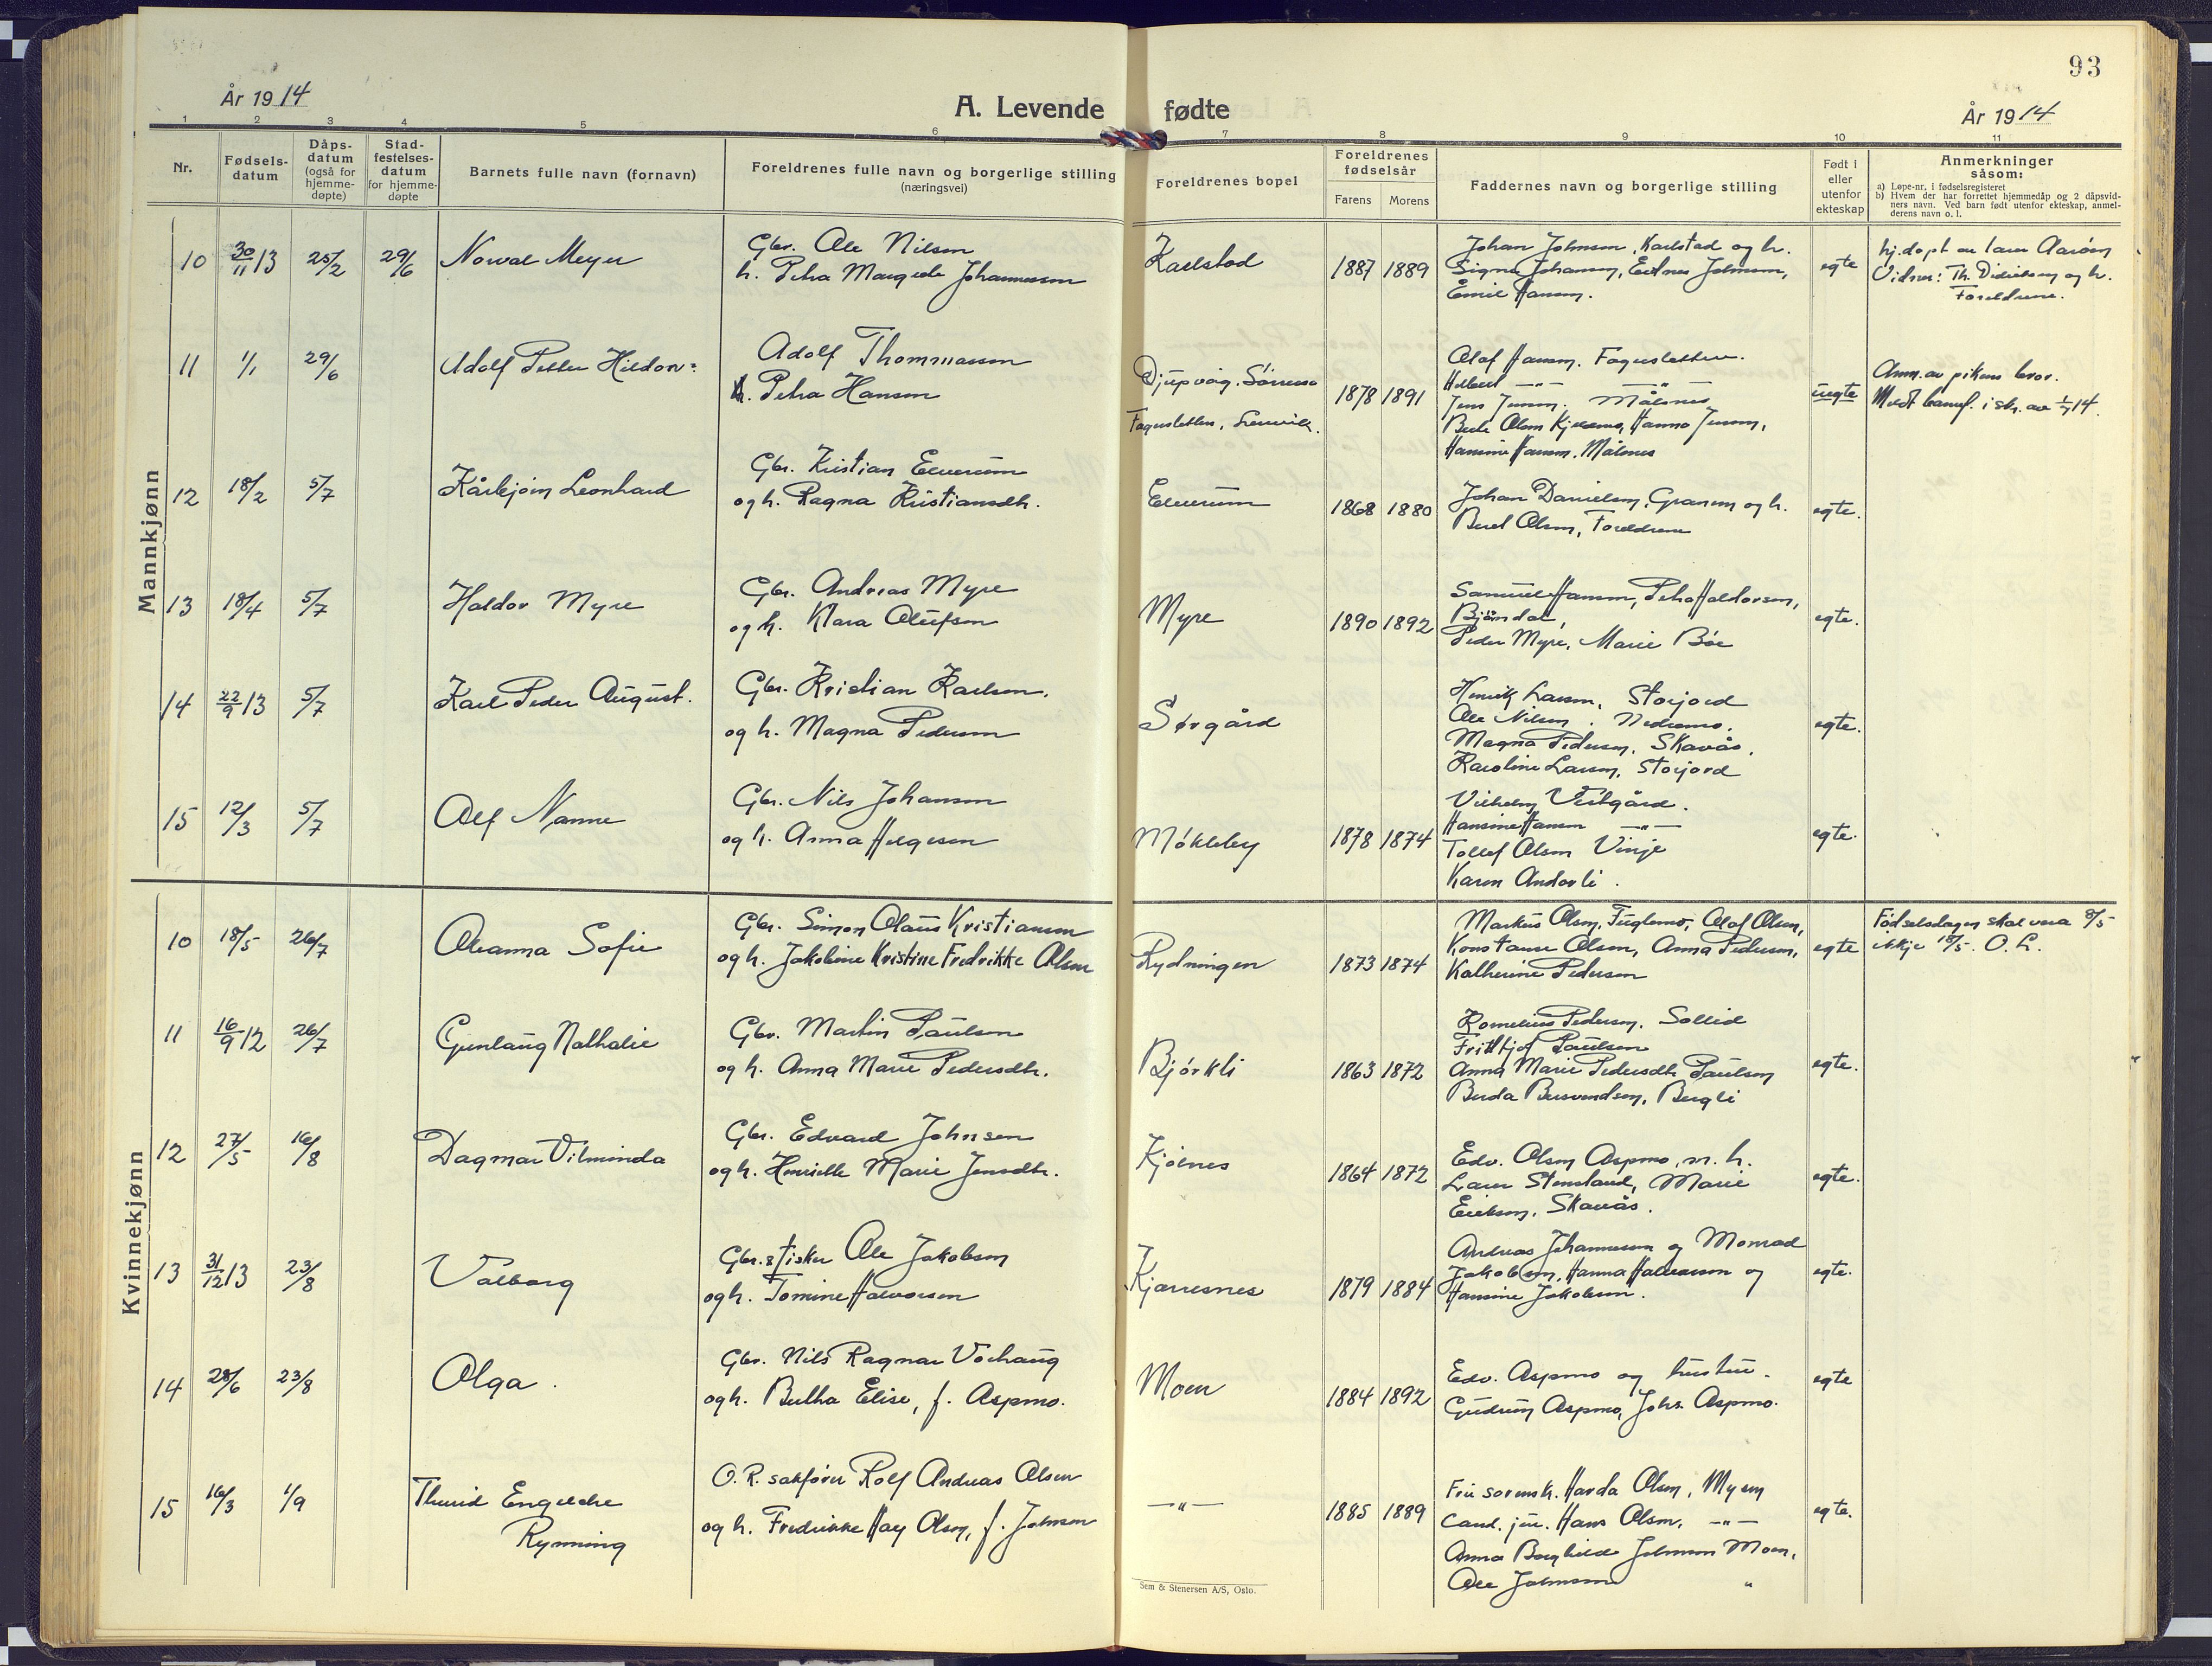 93
År 1914
A. Levende fødte
År 1914
1 2 3 4 5 6 7 8 9 10 11
Nr.
Fødsels-
datum
Dåps-
datum
(også for
hjemme-
døpte)
Stad-
festelses-
datum
for hjemme-
døpte
Barnets fulle navn (fornavn)
Foreldrenes fulle navn og borgerlige stilling
(næringsvei)
Foreldrenes bopel
Foreldrenes
fødselsår
Farens Morens
Faddernes navn og borgerlige stilling
Født i
eller
utenfor
ekteskap
Anmerkninger
såsom:
a) Løpe-nr. i fødselsregisteret
b) Hvem der har forrettet hjemmedåp og 2 dåpsvid-
ners navn. Ved barn født utenfor ekteskap, anmel-
derens navn o. l.
Mannkjønn
10 30/11 13 25/2 29/6 Norval Meyer
Gbr. Ole Nilsen
h. Petra Margrete Johannessen
Karlstad
1887 1889
Johan Johnsen, Karlstad og h.
Signe Johansen, Johnsen,
Emil Hansen.
egte
hj.døpt av lærer Aarøen
Vidner: Th. Didriksen og h.
Foreldrene.
11 1/1 29/6 Adolf Petter Hildor
Adolf Thomassen
Petra Hansen
Djupvåg. Sørreisa
Fagersletten, Lenvik.
1878 1891
Olaf Hansen. Fagersletten.
—"— —"—
Jens Jensen. Målsnes
Olsen Hanna Jensen,
Hansine Hansen. Målsnes
uegte
Anm. av pikens bror.
12 18/2 5/7 Kårbjørn Leonhard
Gbr. Kristian Elverum
og h. Ragna Kristiansdtr.
Elverum
1868 1880
Johan Danielsen, Granum og h.
Berit Olsen, Foreldrene
egte.
13 18/4 5/7 Haldor Myre
Gbr. Andreas Myre
og h. Klara Olufsen
Myre
1890 1892
Samuel Hansen, Petra Haldorsen,
Bjørndal,
Peder Myre, Marie Bøe
egte.
14 22/9 13 5/7 Karl Peder August.
Gbr. Kristian Karlsen.
og h. Magna Pedersen
Sørgård
Henrik Larsen, Storjord
Ole Nilsen. Nedremo.
Magna Pedersen. Skavås.
Karoline Larsen, Storjord
egte.
15 12/3 5/7 Alf Nanne
Gbr. Nils Johansen
og h. Anna Helgesen
Møkleby
1878 1874
Vilhelm Vestgård.
Hansine Hansen —"—
Tollef Olsen Vinje
Karen Andorli.
egte.
Kvinnekjønn
10 18/5 26/7 Oleanna Sofie
Gbr. Simon Olaus Kristiansen
og h. Jakobine Kristine Fredrikke Olsen
Rydningen
1873 1874
Markus Olsen, Fuglemo, Olaf Olsen,
Konstanse Olsen, Anna Pedersen,
Katherine Pedersen
egte
Fødselsdagen skal vera 8/5
ikkje 18/5. O. L.
11 16/9 12 26/7 Gunlaug Nathalie
Gbr. Martin Paulsen
og h. Anna Marie Pedersdtr.
Bjørkli
1863 1872
Kornelius Pedersen. Sollid
Frithjof Paulsen
Anna Marie Pedersdtr Paulsen
Berda Bersvendsen, Bergli
egte.
12 27/5 16/8 Dagmar Vilminda
Gbr. Edvard Johnsen
og h. Henrikke Marie Jensdtr.
Kjølnes
1864 1872
Edv. Olsen Aspmo, m. h.
Lars Stensland, Marie
Eriksen, Skavås.
egte.
13 31/12 13 23/8 Valborg
Gbr. & fisker Ole Jakobsen
og h. Tomine Halvorsen
Kjærresnes
1879 1884
Andreas Johannessen og Monrad
Jakobsen, Hanna Halvorsen og
Hansine Jakobsen.
egte.
14 28/6 23/8 Olga.
Gbr. Nils Ragnar Vårhaug
og h. Bertha Elise, f. Aspmo.
Moen
1884 1892
Edv. Aspmo og hustru.
Gudrun Aspmo, Johs. Aspmo.
egte
15 16/3 1/9 Thurid Engelche
Rynning
O. R. sakfører Rolf Andreas Olsen
og h. Fredrikke Hay Olsen, f. Johnsen
—"—
1885 1889
Fru sorensk. Harda Olsen, Mysen
Cand. jur. Hans Olsen. —"—
Anna Borghild Johnsen Moen,
Ole Johnsen "
egte.
Sem & Stenersen A/S, Oslo.